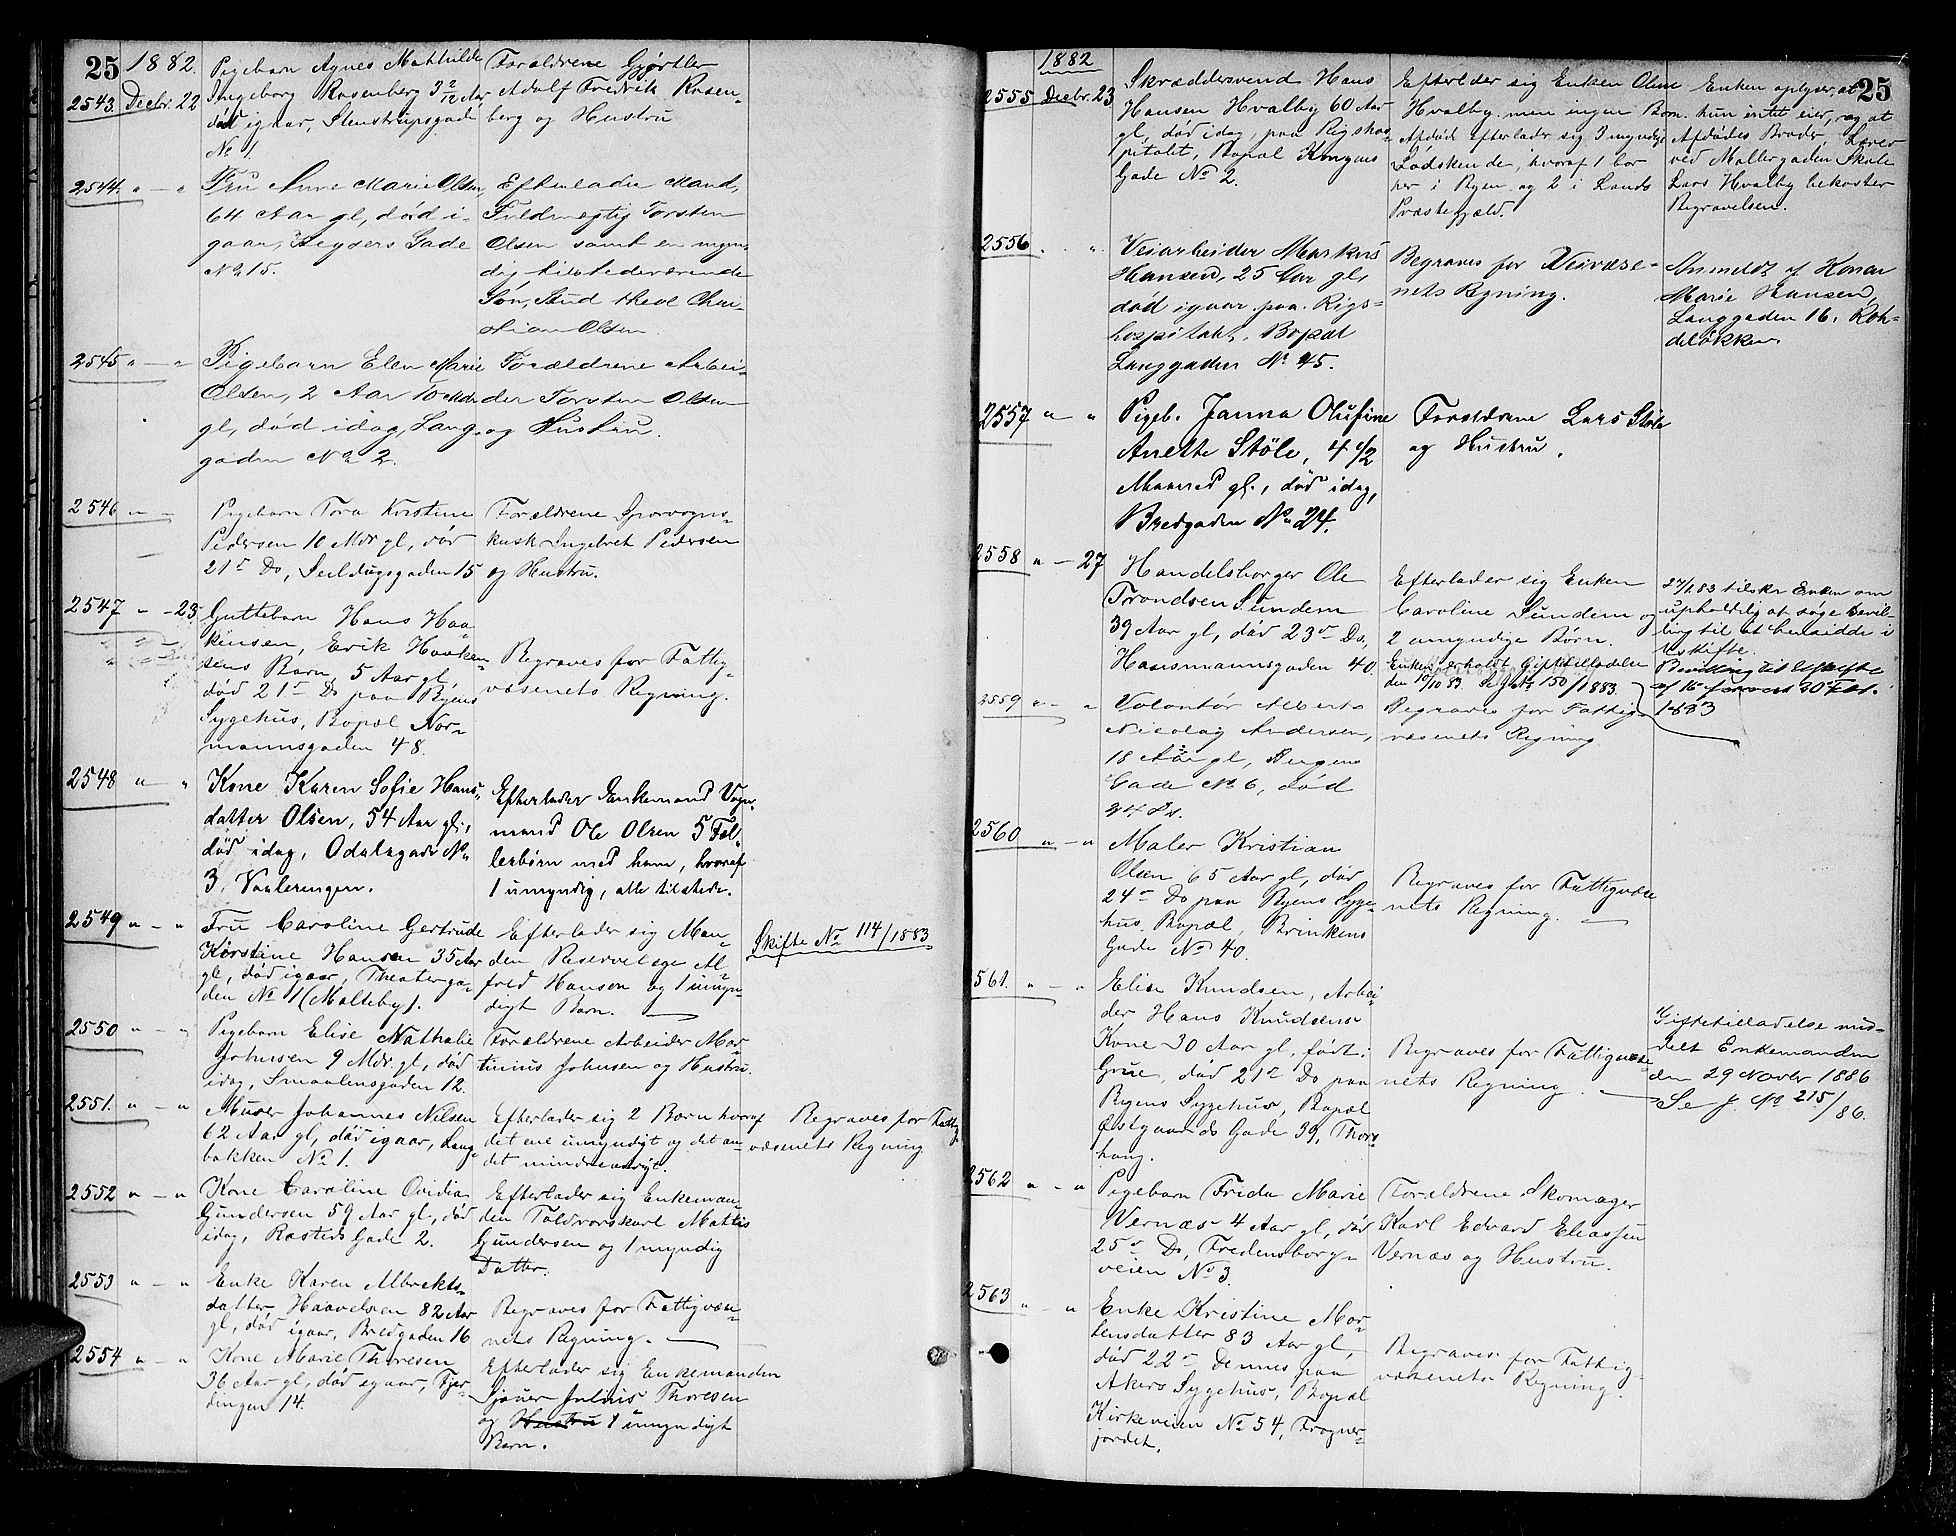 25
1882.
2543. Decbr. 22
Pigebarn Agnes Mathilde
Ingeborg Rosenberg 3 2/12 Aar
død igaar, Stenstrupsgade
No 1.
Forældrene Gjørtler
Adolf Fredrik Rosen-
berg og Hustru
2544. " — "
Fru Anne Marie Olsen,
64 Aar gl, død i-
gaar, Keysers Gade
No 15.
Efterlader Mand,
Fuldmægtig Torsten
Olsen samt en myn-
dig tilstedeværende
Søn, Stud. Chri-
stian Olsen
2545 " — "
Pigebarn Elen Marie
Olsen, 2 Aar 10 Mdr
gl, død idag, Lang-
gaden No 2.
Forældrene Arbei-
der Torsten Olsen
og Hustru.
2546 " — "
Pigebarn Tora Kristine
Pedersen 10 Mdr gl, død
21de Ds, Seildugsgaden 15
Forældrene Sporvogns-
kusk Ingebret Pedersen
og Hustru.
2547 " - 23
Guttebarn Hans Haa-
kensen, Erik Haaken-
sens Barn, 5 Aar gl,
død 21de Ds paa Byens
Sygehus, Bopæl Nor-
mannsgaden 48.
Begraves for Fattig-
væsenets Regning.
2548 " "
Kone Karen Sofie Hans-
datter Olsen, 54 Aar gl.,
død idag, Odalsgade No
3, Vaalerengen.
Efterlader Enkemand Vogn-
mand Ole Olsen 5 Fæl-
lesbørn med ham, hvoraf
1 umyndig, alle tilstede.
2549 " — "
Fru Caroline Gertrude
Kirstine Hansen 35 Aar
gl, død igaar, Theaterga-
den No 1 (Malteby).
Efterlader sig Man-
den Reservelæge Al-
fred Hanson og 1 umyn-
digt Barn.
Skifte No 114/1883
2550 " — "
Pigebarn Elise Nathalie
Johnsen 9 Mdr gl, død
idag, Smaalensgaden 12.
Forældrene Arbeider Mar-
tinius Johnsen og Hustru.
2551. " — "
Murer Johannes Nilsen
62 Aar gl, død igaar, Lang-
bakken No 1.
Efterlader sig 2 Børn hvoraf
det ene umyndigt og det an-
det mindreaarigt.
Begraves for Fattig-
væsenets Regning
2552 " — "
Kone Caroline Ovidia
Gundersen 59 Aar gl., død
idag, Rasteds Gade 2.
Efterlader sig Enkeman-
den Toldvorskarl Mattis
Gundersen og 1 myndig
Datter.
2553 " — "
Enke Karen Albrekts-
datter Haavelsen 82 Aar
gl, død igaar, Bredgaden 16
Begraves for Fattigvæse-
nets Regning.
2554 " — "
Kone Marie Thoresen
36 Aar gl, død igaar, Fjer-
dingen 14.
Efterlader sig Enkemanden
Sjouer Julius Thoresen
og Hustru 1 umyndigt
Barn.
25
1882
2555 Decbr. 23
Skræddersvend Hans
Hansen Hvalby 60 Aar
gl, død idag, paa Rigshos-
pitalet, Bopæl Kongens
Gade No 2.
Efterlder sig Enken Oline
Hvalby men ingen Børn.
Afdøde efterlader sig 3 myndige
Sødskende, hvoraf 1 bor
her i Byen og 2 i Lands
Præstegjæld.
Enken oplyser, at
hun intet eier, og at
Afdødes Broder, Lærer
ved Møllergadens Skole
Lars Hvalby bekoster
Begravelsen.
2556 " "
Veiarbeider Markus
Hansen, 25 Aar gl,
død igaar paa Rigs-
hospitalet, Bopæl
Langgaden No 45.
Begraves for Veivæse-
nets Regning.
Anmeldt af Konen
Marie Hansen,
Langgaden 16, Rok-
deløkken
2557 " — "
Pigeb. Janna Olufine
Anette Støle, 4 1/2
Maaned gl., død idag,
Bredgaden No 24.
Forældrene Lars Støle
og Hustru.
2558 " — 27
Handelsborger Ole
Trondsen Sundem
39 Aar gl, død 23de Ds,
Hausmannsgaden 40
Efterlader sig Enken
Caroline Sundem og
2 umyndige Børn.
Enken erholdt Giftetilladelse
den 10/10 83. Se J. No 150/1883.
27/1.83 tilskr Enken om
upholdelig at søge Bevil-
ling til at hensidde i
Uskifte.
Bevilling til Uskifte
af 15 30te Feb.
1883
2559 " — "
Volontør Alberts
Nicolay Andersen,
18 Aar gl, Bergens
Gade No 6, død
24 Ds.
Begraves for Fattig-
væsenets Regning
2560 " — "
Maler Kristian
Olsen 65 Aar gl, død
24de Ds paa Byens Syge-
hus, Bopæl, Brinkens
Gade No 40.
Begraves for Fattigvæse-
nets Regning.
561. " — "
Elise Knudsen, Arbei-
der Hans Knudsens
Kone 30 Aar gl, født i
Grue, død 21de Ds paa
Byens Sygehus, Bopæl
Østgaards Gade 39, Thors-
haug.
Begraves for Fattigvæse-
nets Regning.
Giftetilladelse med-
delt Enkemanden
den 29 Novbr 1886
Se J. No 215/86.
2562 " — "
Pigebarn Frida Marie
Vernæs 4 Aar gl, død
25de Ds, Fredensborg-
veien No 3.
Forældrene Skomager
Karl Edvard Eliassen
Vernæs og Hustru.
2563 " — "
Enke Kristine Mor-
tensdatter 83 Aar gl,
død 22de Dennes paa
Akers Sygehus, Bopæl
Kirkeveien No 54, Frogner-
jordet.
Begraves for Fattig-
væsenets Regning.